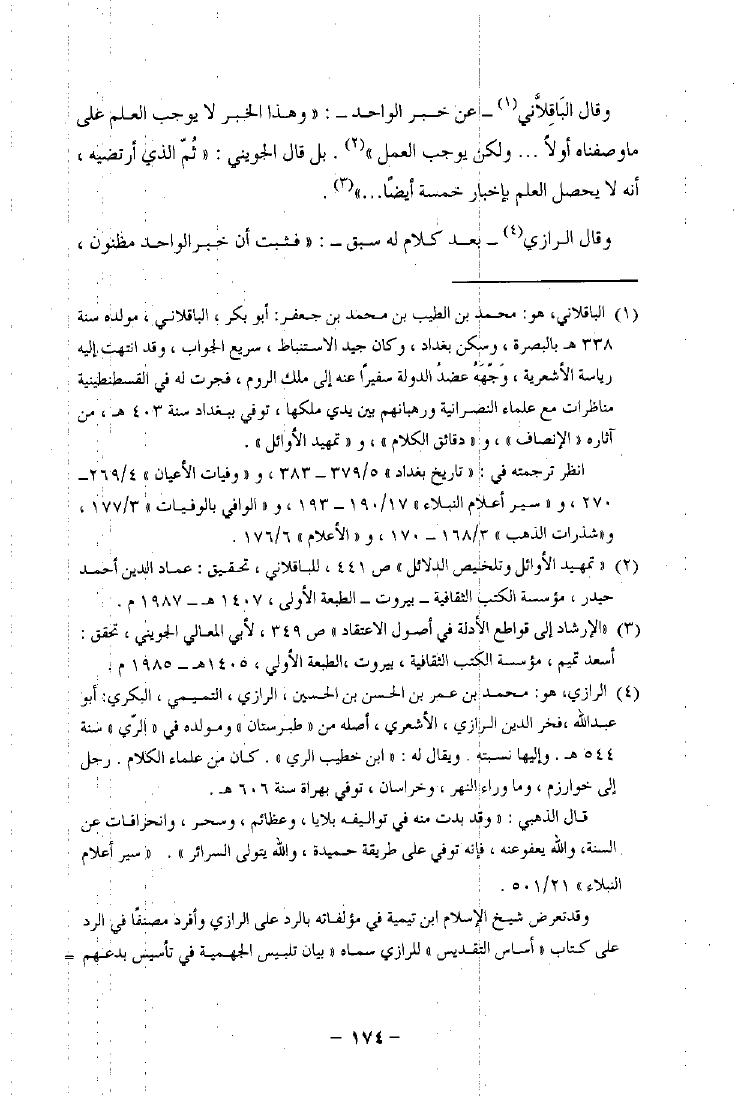 وقال الباقِلاَّني(١) ــ عن خبر الواحد ــ : « وهذا الخبر لا يوجب العلم على
ماوصفناه أولاً ... ولكن يوجب العمل »(٢) . بل قال الجويني : « ثُمّ الذي أرتضيه ،
أنه لا يحصل العلم بإخبار خمسة أيضًا...»(٣) .
وقال الرازي(٤) ــ بعد كلام له سبق ــ : « فثبت أن خبرالواحد مظنون ،
(١) الباقلاني، هو: محمد بن الطيب بن محمد بن جعفر: أبو بكر ، الباقلاني ، مولده سنة
٣٣٨ هـ بالبصرة ، وسكن بغداد ، وكان جيد الاستنباط ، سريع الجواب ، وقد انتهت إليه
رياسة الأشعرية ، وَجَّهَهُ عضدُ الدولة سفيرًا عنه إلى ملك الروم ، فجرت له في القسطنطينية
مناظرات مع علماء النصرانية ورهبانهم بين يدي ملكها ، توفي ببغداد سنة ٤٠٣ هـ ، من
آثاره « الإنصاف » ، و « دقائق الكلام » ، و « تمهيد الأوائل » .
انظر ترجمته في : « تاريخ بغداد » ٣٧٩/٥ ــ ٣٨٣ ، و « وفيات الأعيان » ٢٦٩/٤ــ
٢٧٠ ، و « سير أعلام النبلاء » ١٩٠/١٧ ــ ١٩٣ ، و « الوافي بالوفيات » ١٧٧/٣ ،
و«شذرات الذهب » ١٦٨/٣ ــ ١٧٠ ، و «الأعلام » ١٧٦/٦ .
(٢) « تمهيد الأوائل وتلخيص الدلائل » ص ٤٤١ ، للباقلاني ، تحقيق : عماد الدين أحمد
حيدر ، مؤسسة الكتب الثقافية ــ بيروت ــ الطبعة الأولى ، ١٤٠٧ هـ ــ ١٩٨٧ م .
(٣) «الإرشاد إلى قواطع الأدلة في أصول الاعتقاد » ص ٣٤٩ ، لأبي المعالي الجويني ، تحقق :
أسعد تميم ، مؤسسة الكتب الثقافية ، بيروت ،الطبعة الأولي ، ١٤٠٥هـ ــ ١٩٨٥ م .
(٤) الرازي، هو: محمد بن عمر بن الحسن بن الحسين ، الرازي ، التميمي ، البكري: أبو
عبدالله ،فخر الدين الرازي ، الأشعري ، أصله من « طبرستان » ومولده في « الرّي » سنة
٥٤٤ هـ . وإليها نسبته . ويقال له : « ابن خطيب الري » . كان من علماء الكلام . رحل
إلى خوارزم ، وما وراء النهر ، وخراسان ، توفي بهراة سنة ٦٠٦ هـ .
قال الذهبي : « وقد بدت منه في تواليفه بلايا ، وعظائم ، وسحر ، وانحرافات عن
السنة، والله يعفوعنه ، فإنه توفي على طريقة حميدة ، والله يتولى السرائر » . « سير أعلام
النبلاء » ٥٠١/٢١ .
وقدتعرض شيخ الإسلام ابن تيمية في مؤلفاته بالرد على الرازي وأفرد مصنفًا في الرد
على كتاب « أساس التقديس » للرازي سماه « بيان تلبيس الجهمية في تأسيس بدعهم =
– ١٧٤ –